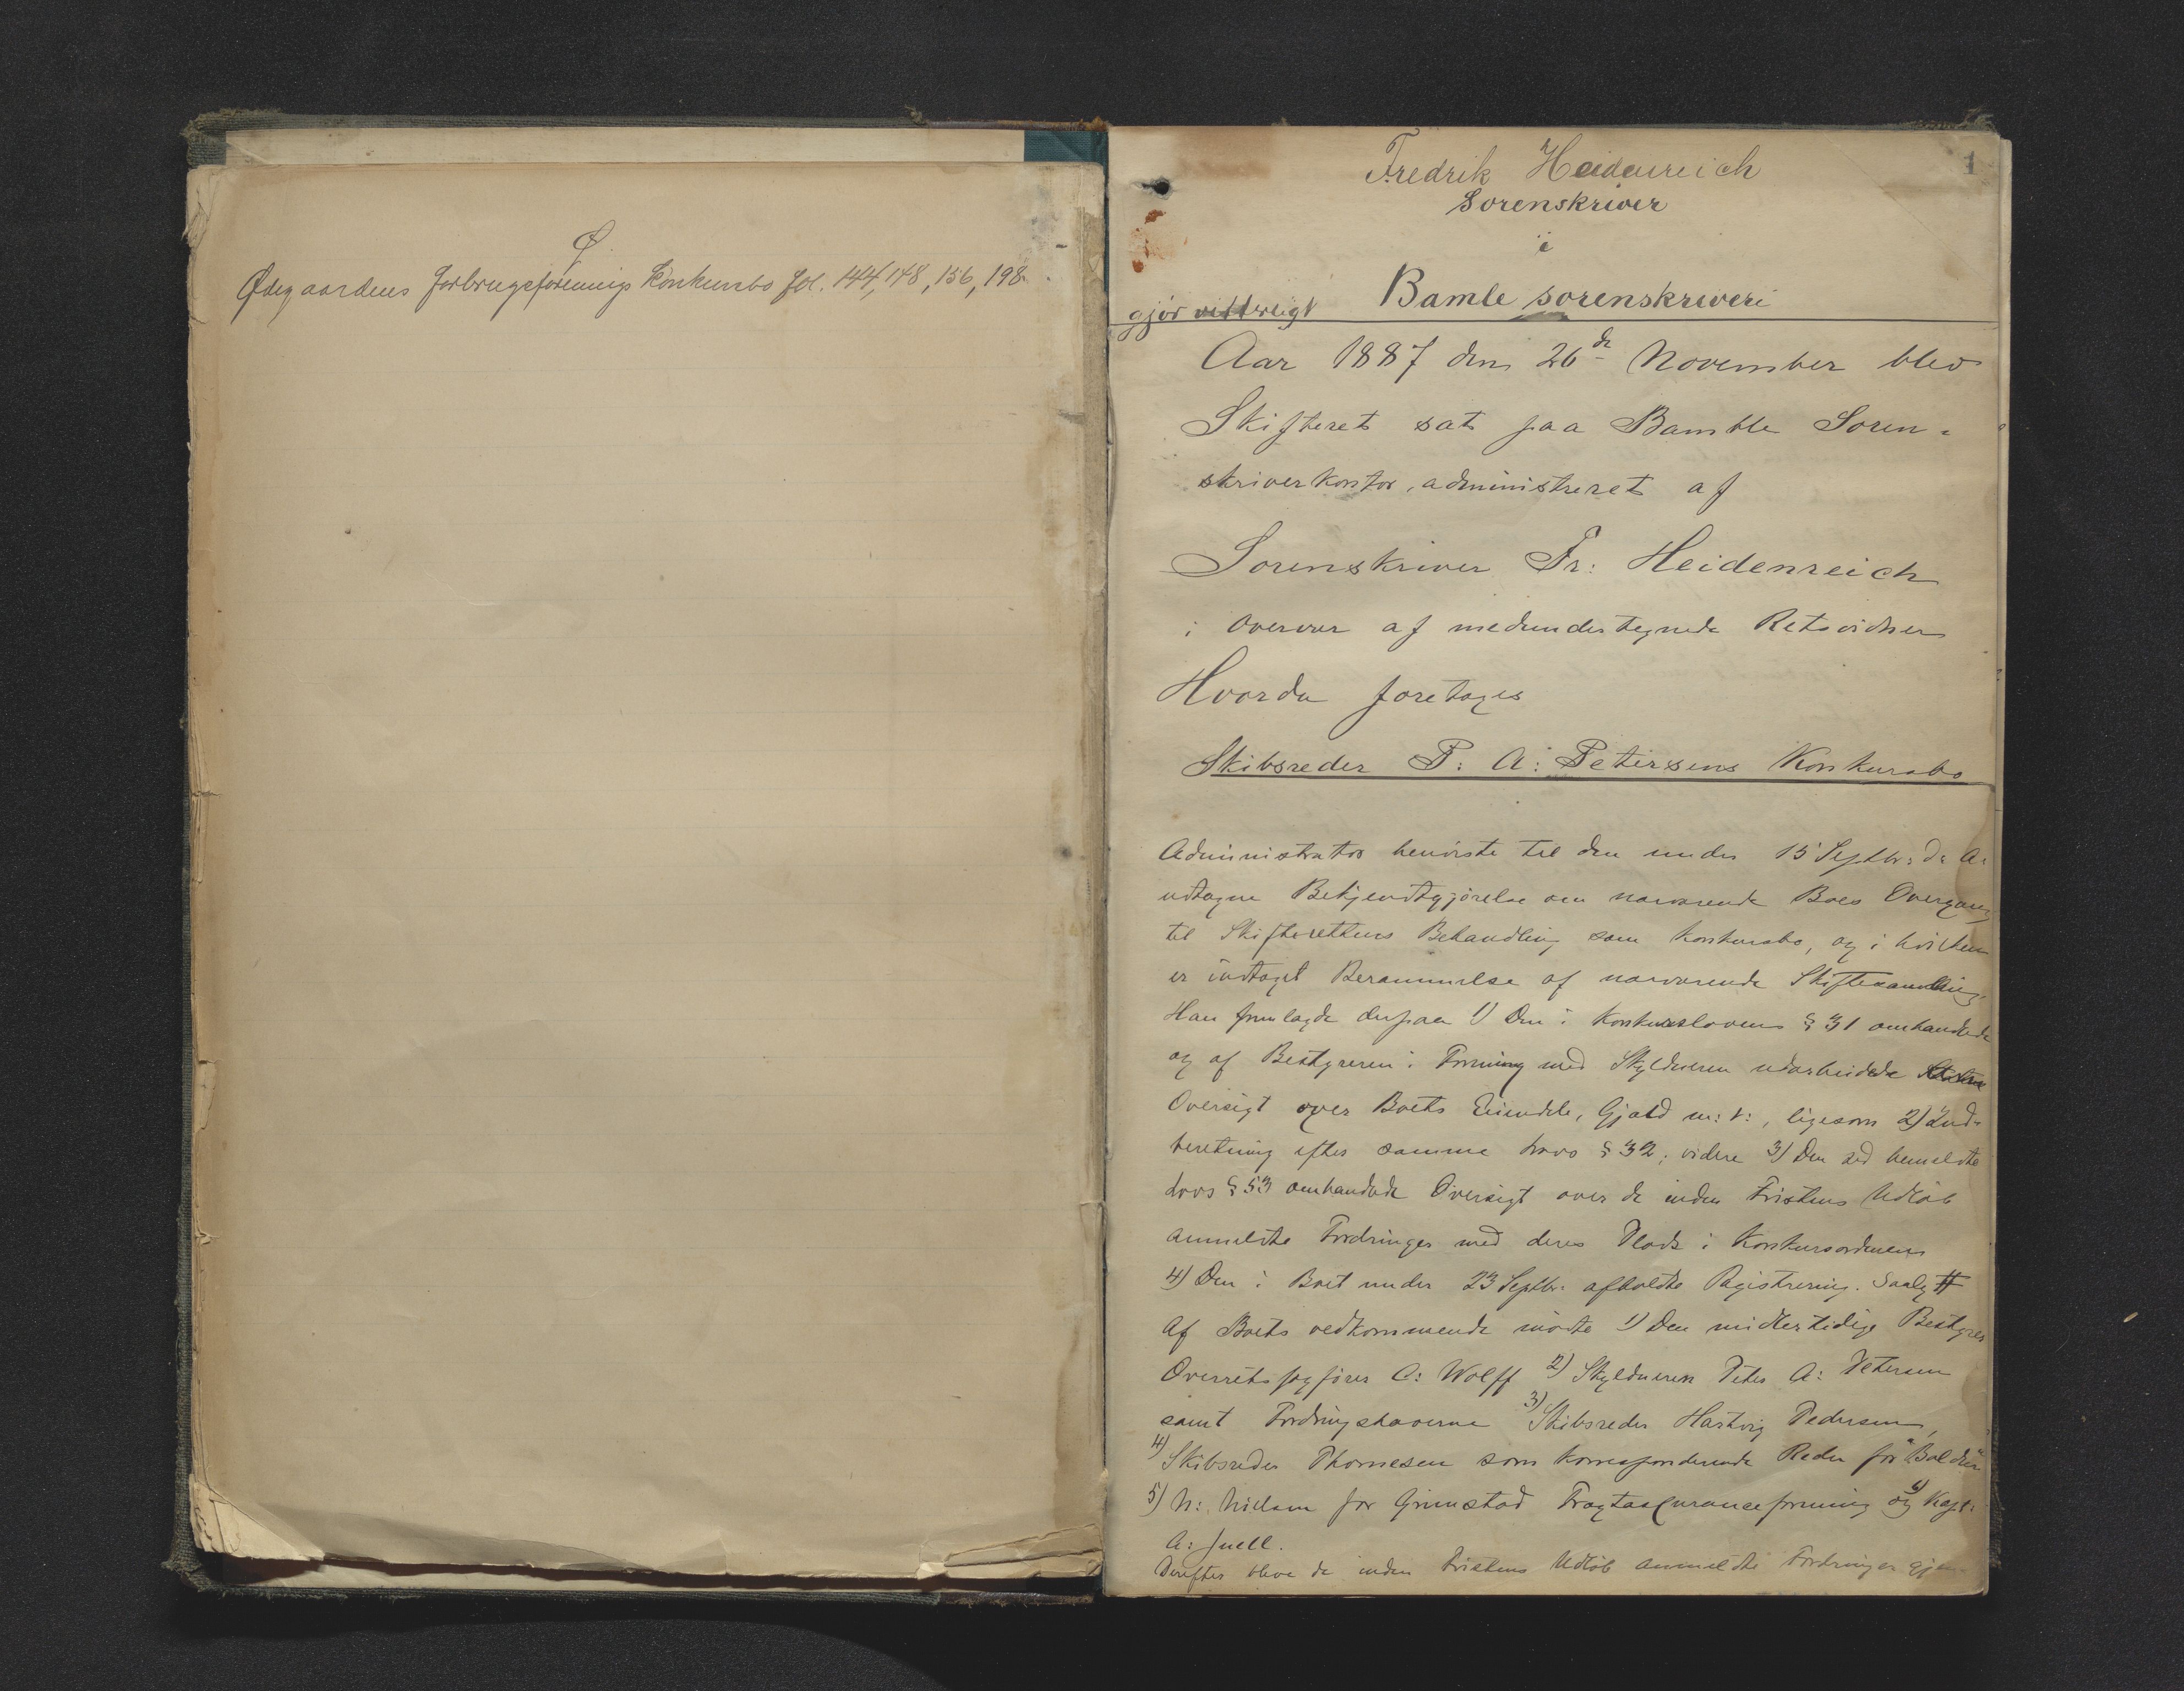 Ø
Ødegaardens Forbrugsforenings Konkursbo fol. 144, 148, 156, 198
1
Fredrik Heidenreich
Sorenskriver
i
Bamle sorenskriveri
gjør vitterligt
Aar 1887 den 26de November blev
Skifteret sat paa Bamble Soren-
skriverkontor, administreret af
Sorenskriver Fr: Heidenreich
i Overvær af medundertegnede Retsvidner
Hvorda foretoges
Skibsreder P: A: Petersens Konkursbo
Administrator henviste til den under 15 Septbr: d: A:
udtagne Bekjendtgjørelse om nærværende Boes Overgang
til Skifterettens Behandling som Konkursbo, og i hvilken
er indtaget Berammelse af nærværende Skiftesamling.
Han fremlagde derpaa 1) Den i Konkurslovens § 31 omhandlede
og af Bestyreren i Forening med Skyldneren udarbeidede
Oversigt over Boets Eiendele, Gjæld m: v:, ligesom 2) Ind-
beretning efter samme Lovs § 32, videre 3) Den ved bemeldte
Lovs § 53 omhandlede Oversigt over de inden Fristens Udløb
anmeldte Fordringer med deres Plads i Konkursordenen
4) Den i Boet under 23 Septbr: afholdte Registrering. Saalg #
Af Boets vedkommende mødte 1) Den midlertidige Bestyrer
Overretssagfører C: Wolff 2) Skyldneren Peter A: Petersen
samt Fordringshaverne 3) Skibsreder Hartvig Pedersen,
4) Skibsreder Thomesen som korresponderende Reder for "Baldur"
5) N: Nielsen for Grimstad Fragtassuranceforening og 6) Kapt:
A: Juell.
Derefter bleve de inden Fristens Udløb anmeldte Fordringer gjen-